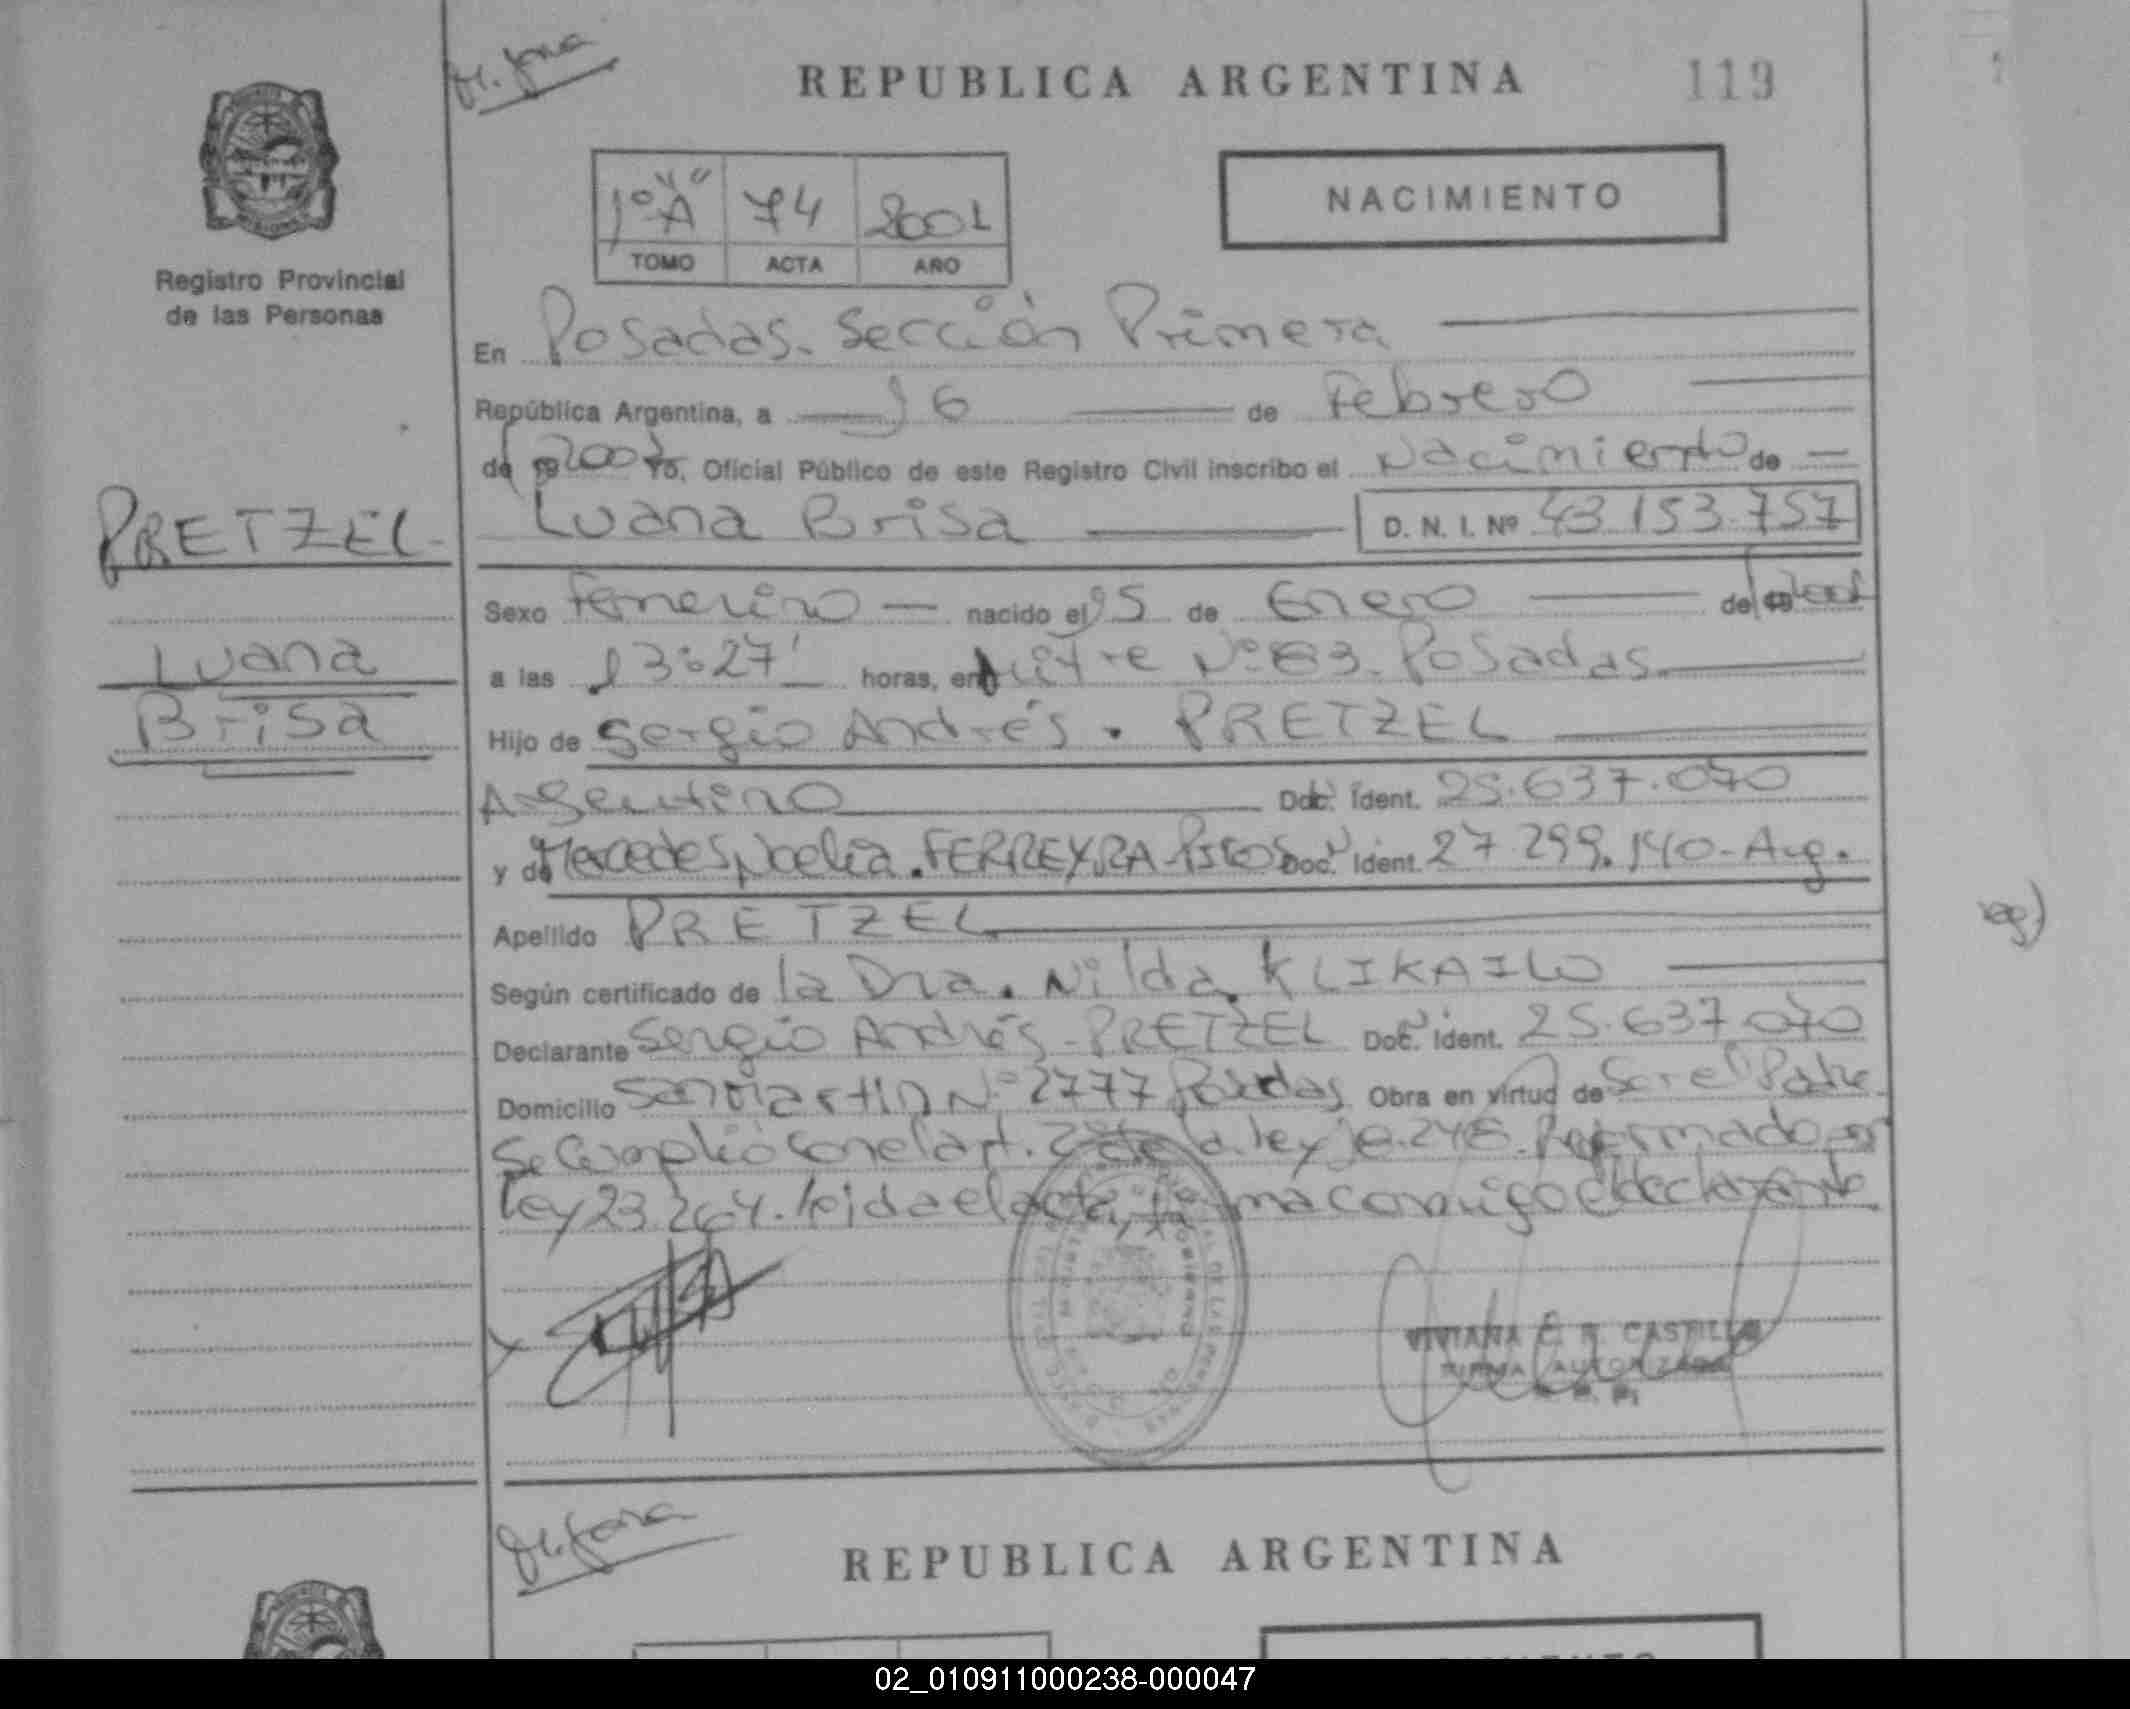 REPUBLICA ARGENTINA
119
1º "A" 74 2001
TOMO ACTA AÑO
NACIMIENTO
Registro Provincial
de las Personas
PRETZEL
Luana
Brisa
En Posadas. Sección Primera
República Argentina, a 16 de Febrero
de 2001 Yo, Oficial Público de este Registro Civil inscribo el Nacimiento de
Luana Brisa D. N. I. Nº 43.153.757
Sexo femenino nacido el 5 de Enero de 2001
a las 13:27' horas, en Mitre Nº 83. Posadas.
Hijo de Sergio Andrés. PRETZEL
Argentino Doc. Ident. 25.637.070
y de Mercedes Noelia. FERREYRA Doc. Ident. 27 299.140-Arg.
Apellido PRETZEL
Según certificado de la Dra. Nilda. KLIKAILO
Declarante Sergio Andrés-PRETZEL Doc. Ident. 25.637.070
Domicilio San Martin Nº 2777 Posadas Obra en virtud de Ser el Padre
Se Cumplió con el art. de la ley Reformado
ley 23.264. leida el acta, firma conmigo el declarante
VIVIANA E. R. CASTILLO
FIRMA AUTORIZADA
REPUBLICA ARGENTINA
02_010911000238-000047